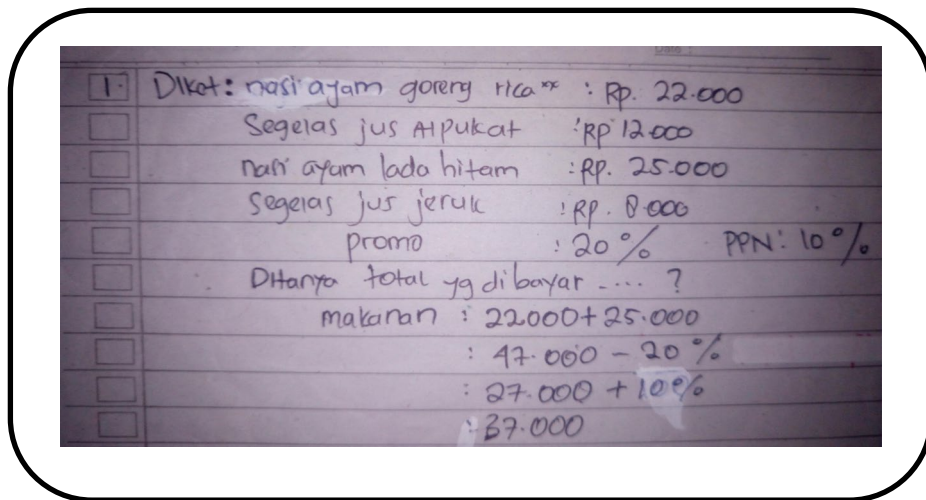 1. Diket: nasi ayam goreng rica" : Rp. 22.000
Segelas jus Alpukat : Rp 12.000
nasi ayam lada hitam : Rp. 25.000
Segelas jus jeruk : Rp. 8.000
promo : 20% PPN: 10%
Ditanya total yg dibayar .... ?
makanan : 22000+25.000
: 47.000 - 20%
: 27.000 + 10%
: 37.000